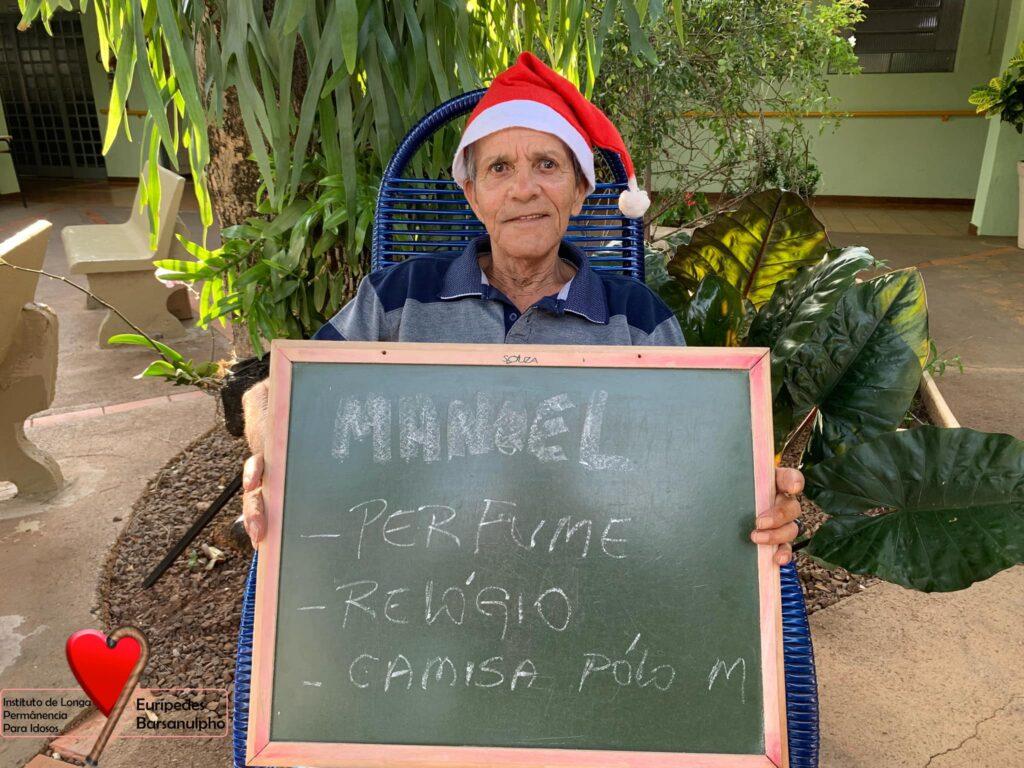 SOUZA
MANOEL
- PERFUME
- RELÓGIO
- CAMISA PÓLO M
Instituto de Longa
Permânencia
Para Idosos
Eurípedes
Barsanulpho